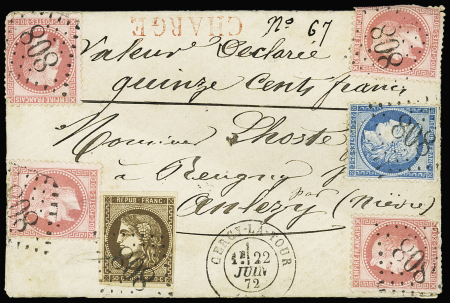 CHARGÉ
N° 67
Valeur Déclarée
quinze cents francs
Monsieur Lhoste
à Reugny par
Anlezy (Nièvre)
808
808
808
808
808
808
REPUB. FRANC.
CERCY-LA-TOUR
1E 22
JUIN
72